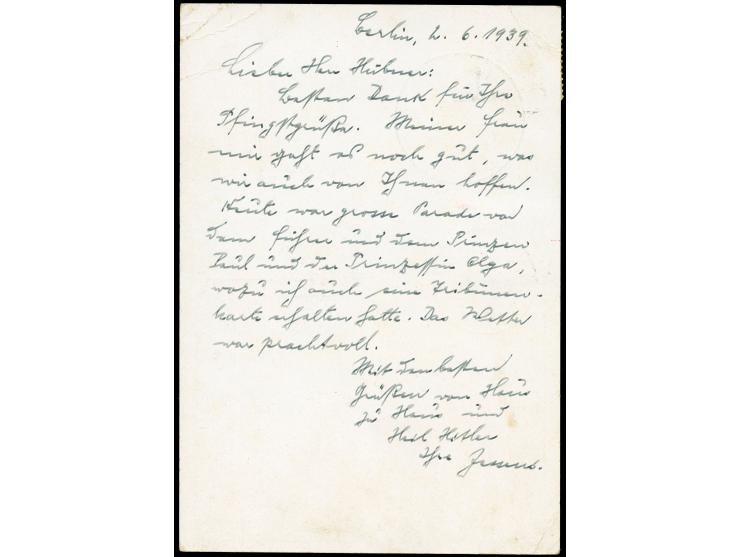 Berlin, 2. 6. 1939.
Lieber Herr Hübner:
Besten Dank für Ihre
Pfingstgrüße. Meiner Frau
mir geht es noch gut, was
wir auch von Ihnen hoffen.
Heute war grosse Parade vor
dem Führer und dem Prinzen
Paul und der Prinzessin Olga,
wozu ich auch eine Tribünen-
karte erhalten hatte. Das Wetter
war prachtvoll.
Mit den besten
Grüßen von Haus
zu Haus und
Heil Hitler
Ihr